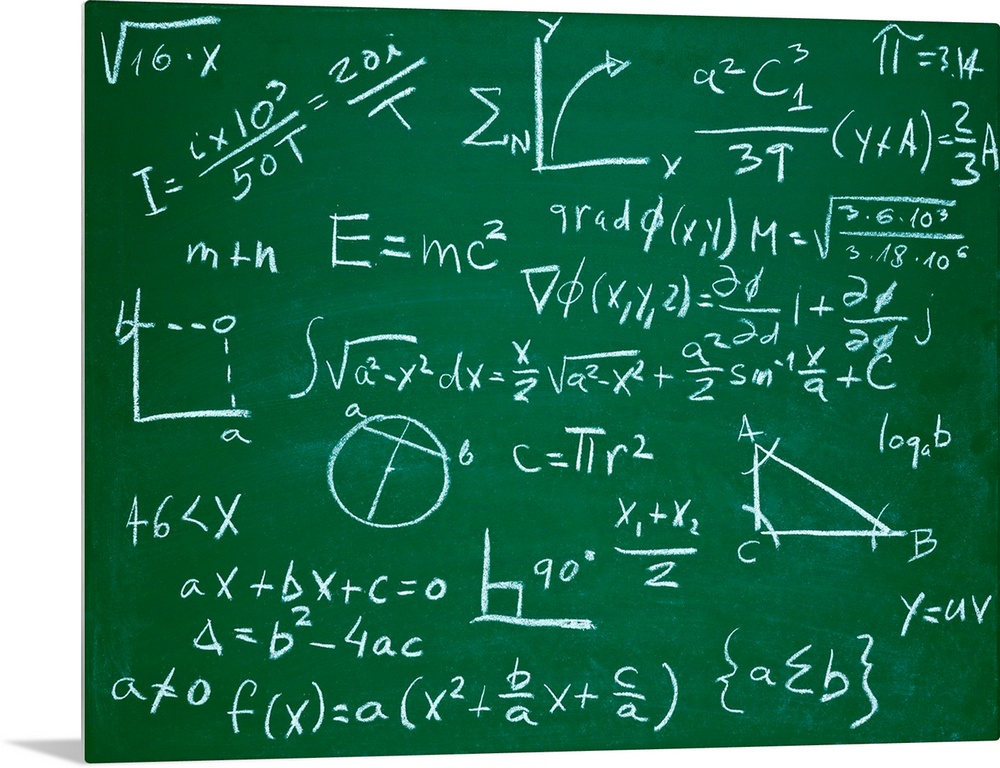 √16·x
I = i×10³/50T = 20i/T
Σ_N
Y
X
a²C₁³/39
π=3.14
(Y+A)=2/3A
m+n
E=mc²
gradϕ(x,y) M=√(3·6·10³/3·18·10⁶)
∇ϕ(x,y,2)=∂ϕ/∂d i+∂ϕ/∂ϕ j
b
a
∫√a²-x² dx=x/2√a²-x²+a²/2 sin⁻¹x/a+C
a
b
c=πr²
A
C
B
logₐb
46<X
x₁+x₂/2
90°
ax+bx+c=0
Δ=b²-4ac
Y=uv
a≠0
f(x)=a(x²+b/a x+c/a)
{aΣb}